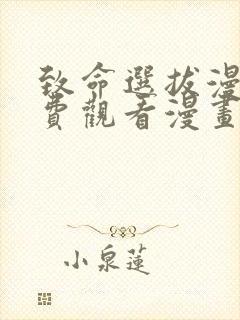 致命選拔漫
費觀看漫畫
小泉蓮